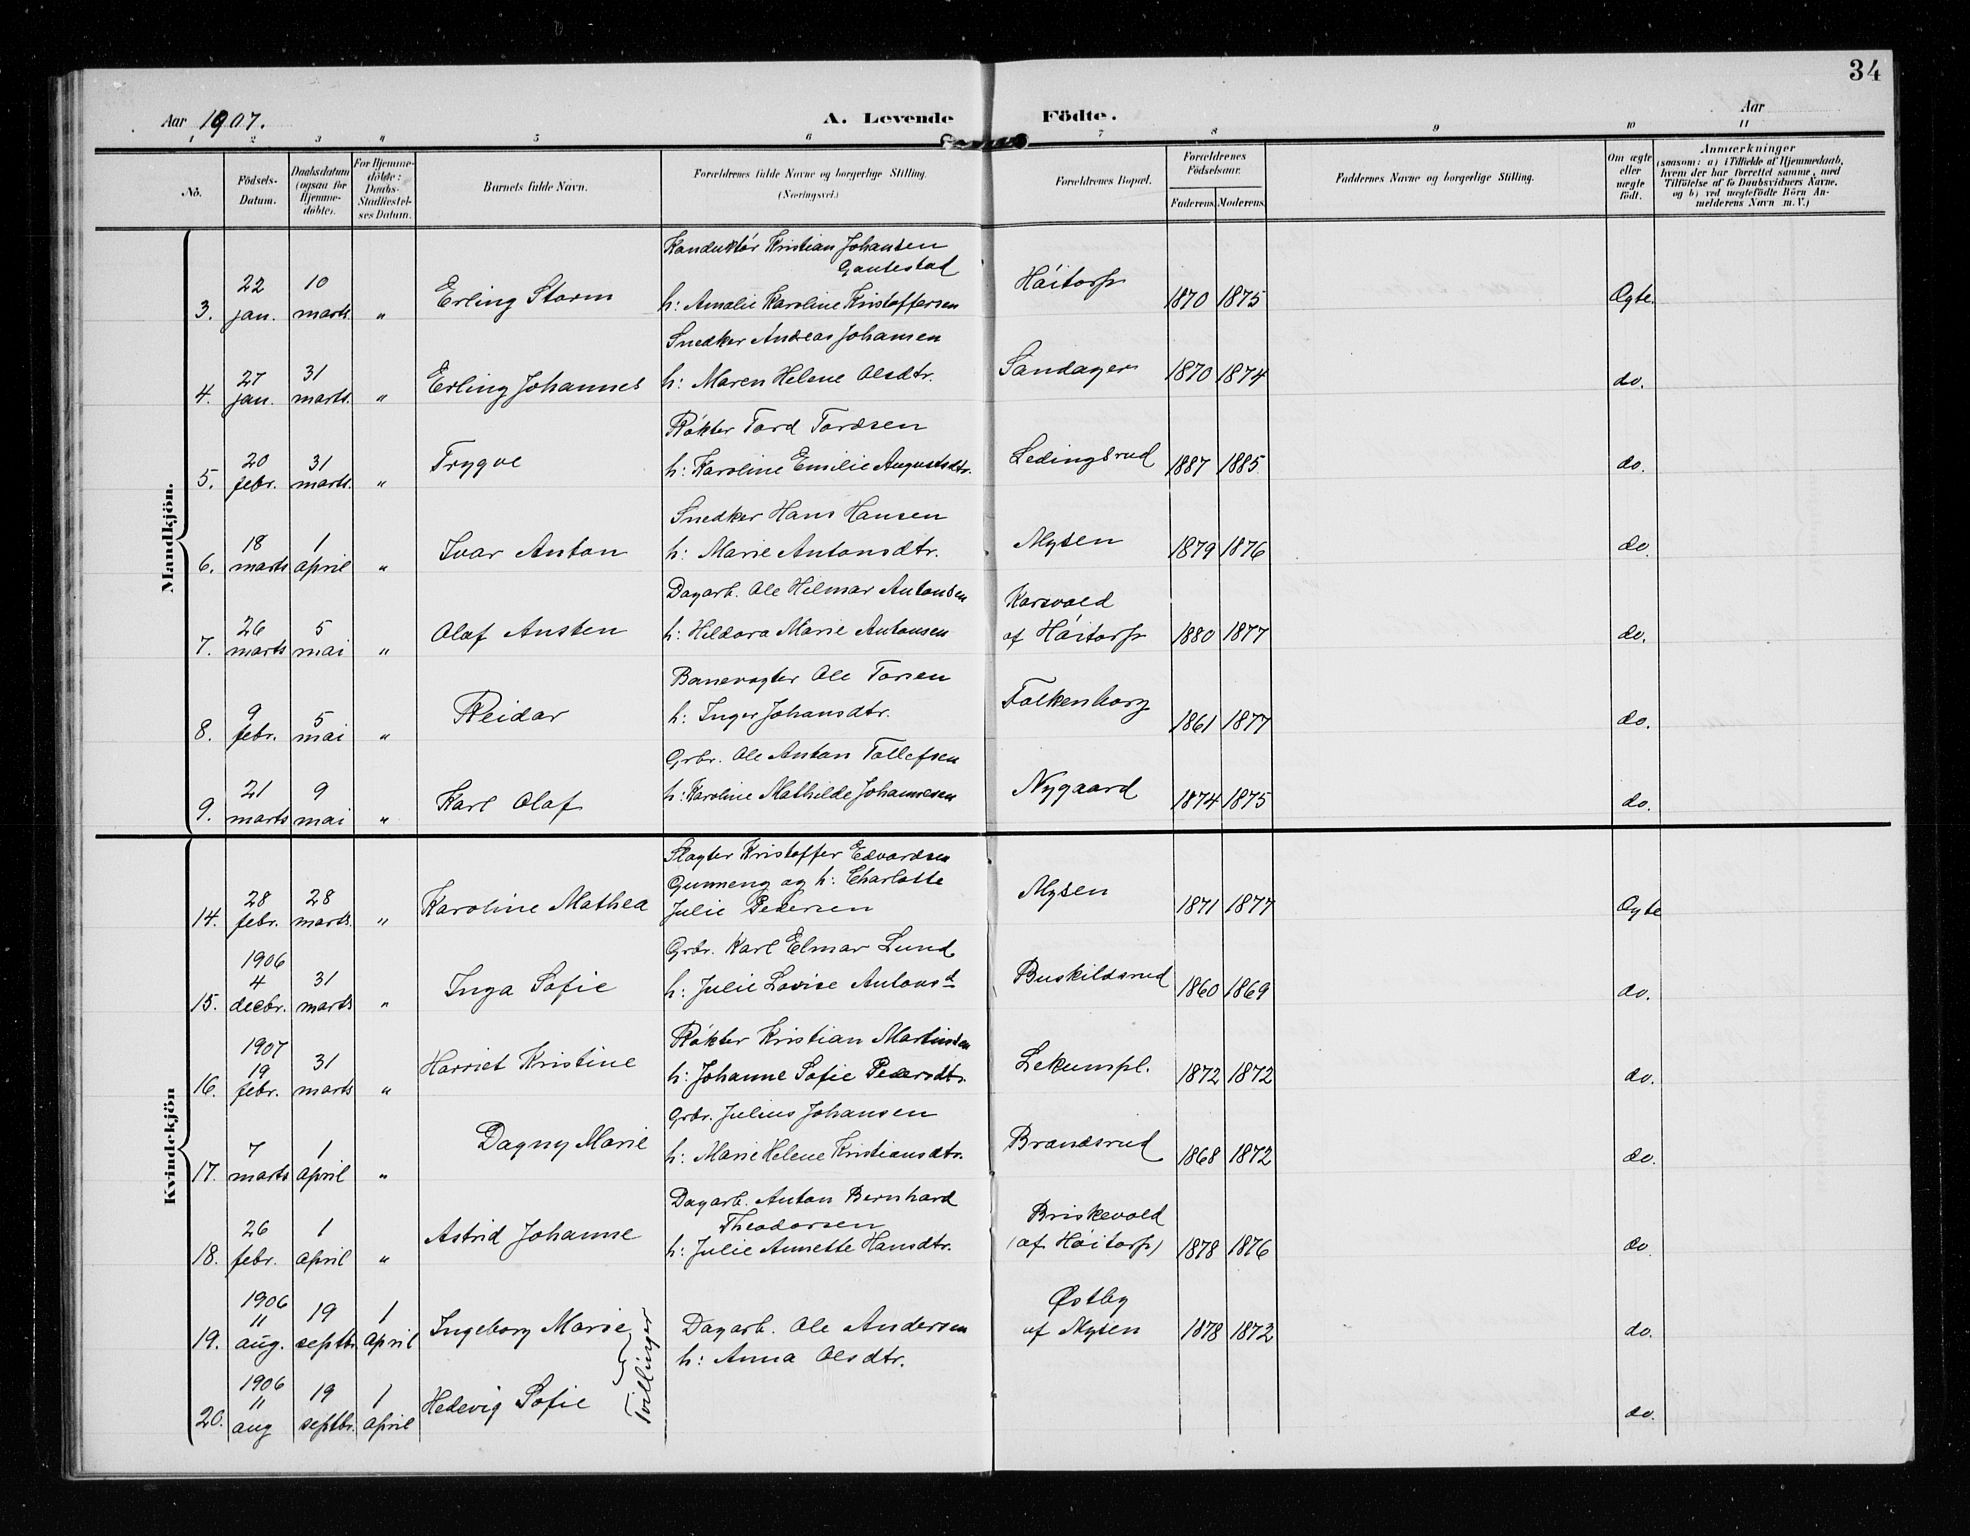 34
Aar 1907. A. Levende Födte. Aar
1 2 3 4 5 6 7 8 9 10 11
No. Födsels-Datum. Daabsdatum (ogsaa for Hjemme-döbte). For Hjemme-döbte: Daabs-Stadfæstel-ses Datum. Barnets fulde Navn. Forældrenes fulde Navne og borgerlige Stilling. (Næringsvei.) Forældrenes Bopæl. Forældrenes Födselsaar. Faderens. Moderens. Faddernes Navne og borgerlige Stilling. Om ægte eller uægte födt. Anmærkninger (saasom: a) i Tilfælde af Hjemmedaab, hvem der har forrettet samme, med Tilföielse af to Daabsvidners Navne, og b) ved uægtefödte Börn An-melderens Navn m. V.)
Mandkjön.
Konduktör Kristian Johansen
Gautestad
3. 22 jan. 10 marts. " Erling Storm h: Amalie Karoline Kristoffersen Höitorp 1870 1875 Ægte.
Snedker Andreas Johansen
4. 27 jan. 31 marts. " Erling Johannes h: Maren Helene Olsdtr. Sandager 1870 1874 do.
Rökter Tord Tordsen
5. 20 febr. 31 marts. " Trygve h: Karoline Emilie Augustsdtr. Ledingsrud 1887 1885 do.
Snedker Hans Hansen
6. 18 marts 1 april " Ivar Anton h: Marie Antonsdtr. Mysen 1879 1876 do.
Dagarb. Ole Hilmar Antonsen
Korsvold
7. 26 marts 5 mai " Olaf Austen h: Hildora Marie Antonsen af Höitorp 1880 1877 do.
Banevogter Ole Torsen
8. 9 febr. 5 mai " Reidar h: Inger Johansdtr. Falkenborg 1861 1877 do.
Grbr. Ole Anton Tollefsen
9. 21 marts 9 mai " Karl Olaf h: Karoline Mathilde Johannesen Nygaard 1874 1875 do.
Kvindekjön
Slagter Kristoffer Edvardsen
Gunneng og h: Charlotte
14. 28 febr. 28 marts. " Karoline Mathea Julie Pedersen Mysen 1871 1877 Ægte
Grbr. Karl Elmar Lund
15. 1906 4 decbr. 31 marts " Inga Sofie h: Julie Lovise Antonsd Buskildsrud 1860 1869 do.
Rökter Kristian Martinsen
16. 1907 19 febr. 31 marts " Harriet Kristine h: Johanne Sofie Pedersdtr. Lekumpl. 1872 1872 do.
Grbr. Julius Johansen
17. 7 marts 1 april " Dagny Marie h: Marie Helene Kristiansdtr. Brandsrud 1868 1872 do.
Dagarb. Anton Bernhard
Theodorsen
Briskevold
18. 26 febr. 1 april " Astrid Johanne h: Julie Annette Hansdtr. (af Höitorp) 1878 1876 do
Østby
19. 1906 11 aug. 19 septbr 1 april Ingeborg Marie Dagarb. Ole Andersen af Mysen 1878 1872 do.
h: Anna Olsdtr.
Tvillinger
20. 1906 11 aug 19 septbr. 1 april Hedevig Sofie do.